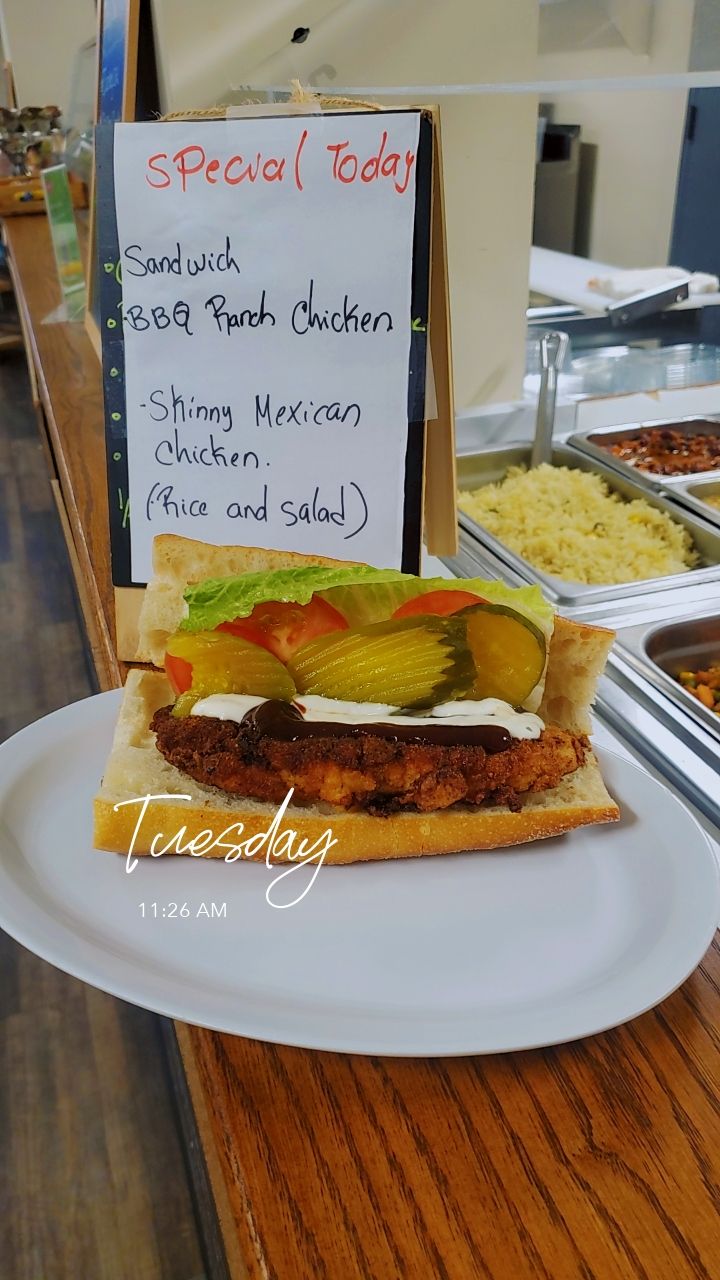 Special Today
Sandwich
-BBQ Ranch Chicken
-Skinny Mexican
Chicken.
(Rice and salad)
Tuesday
11:26 AM